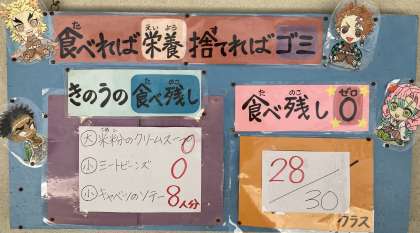 食べれば栄養捨てればゴミ
きのうの食べ残し
大 米粉のクリームスープ 0
小 ミートビーンズ 0
小 キャベツのソテー 8人分
食べ残し0
28/30
クラス